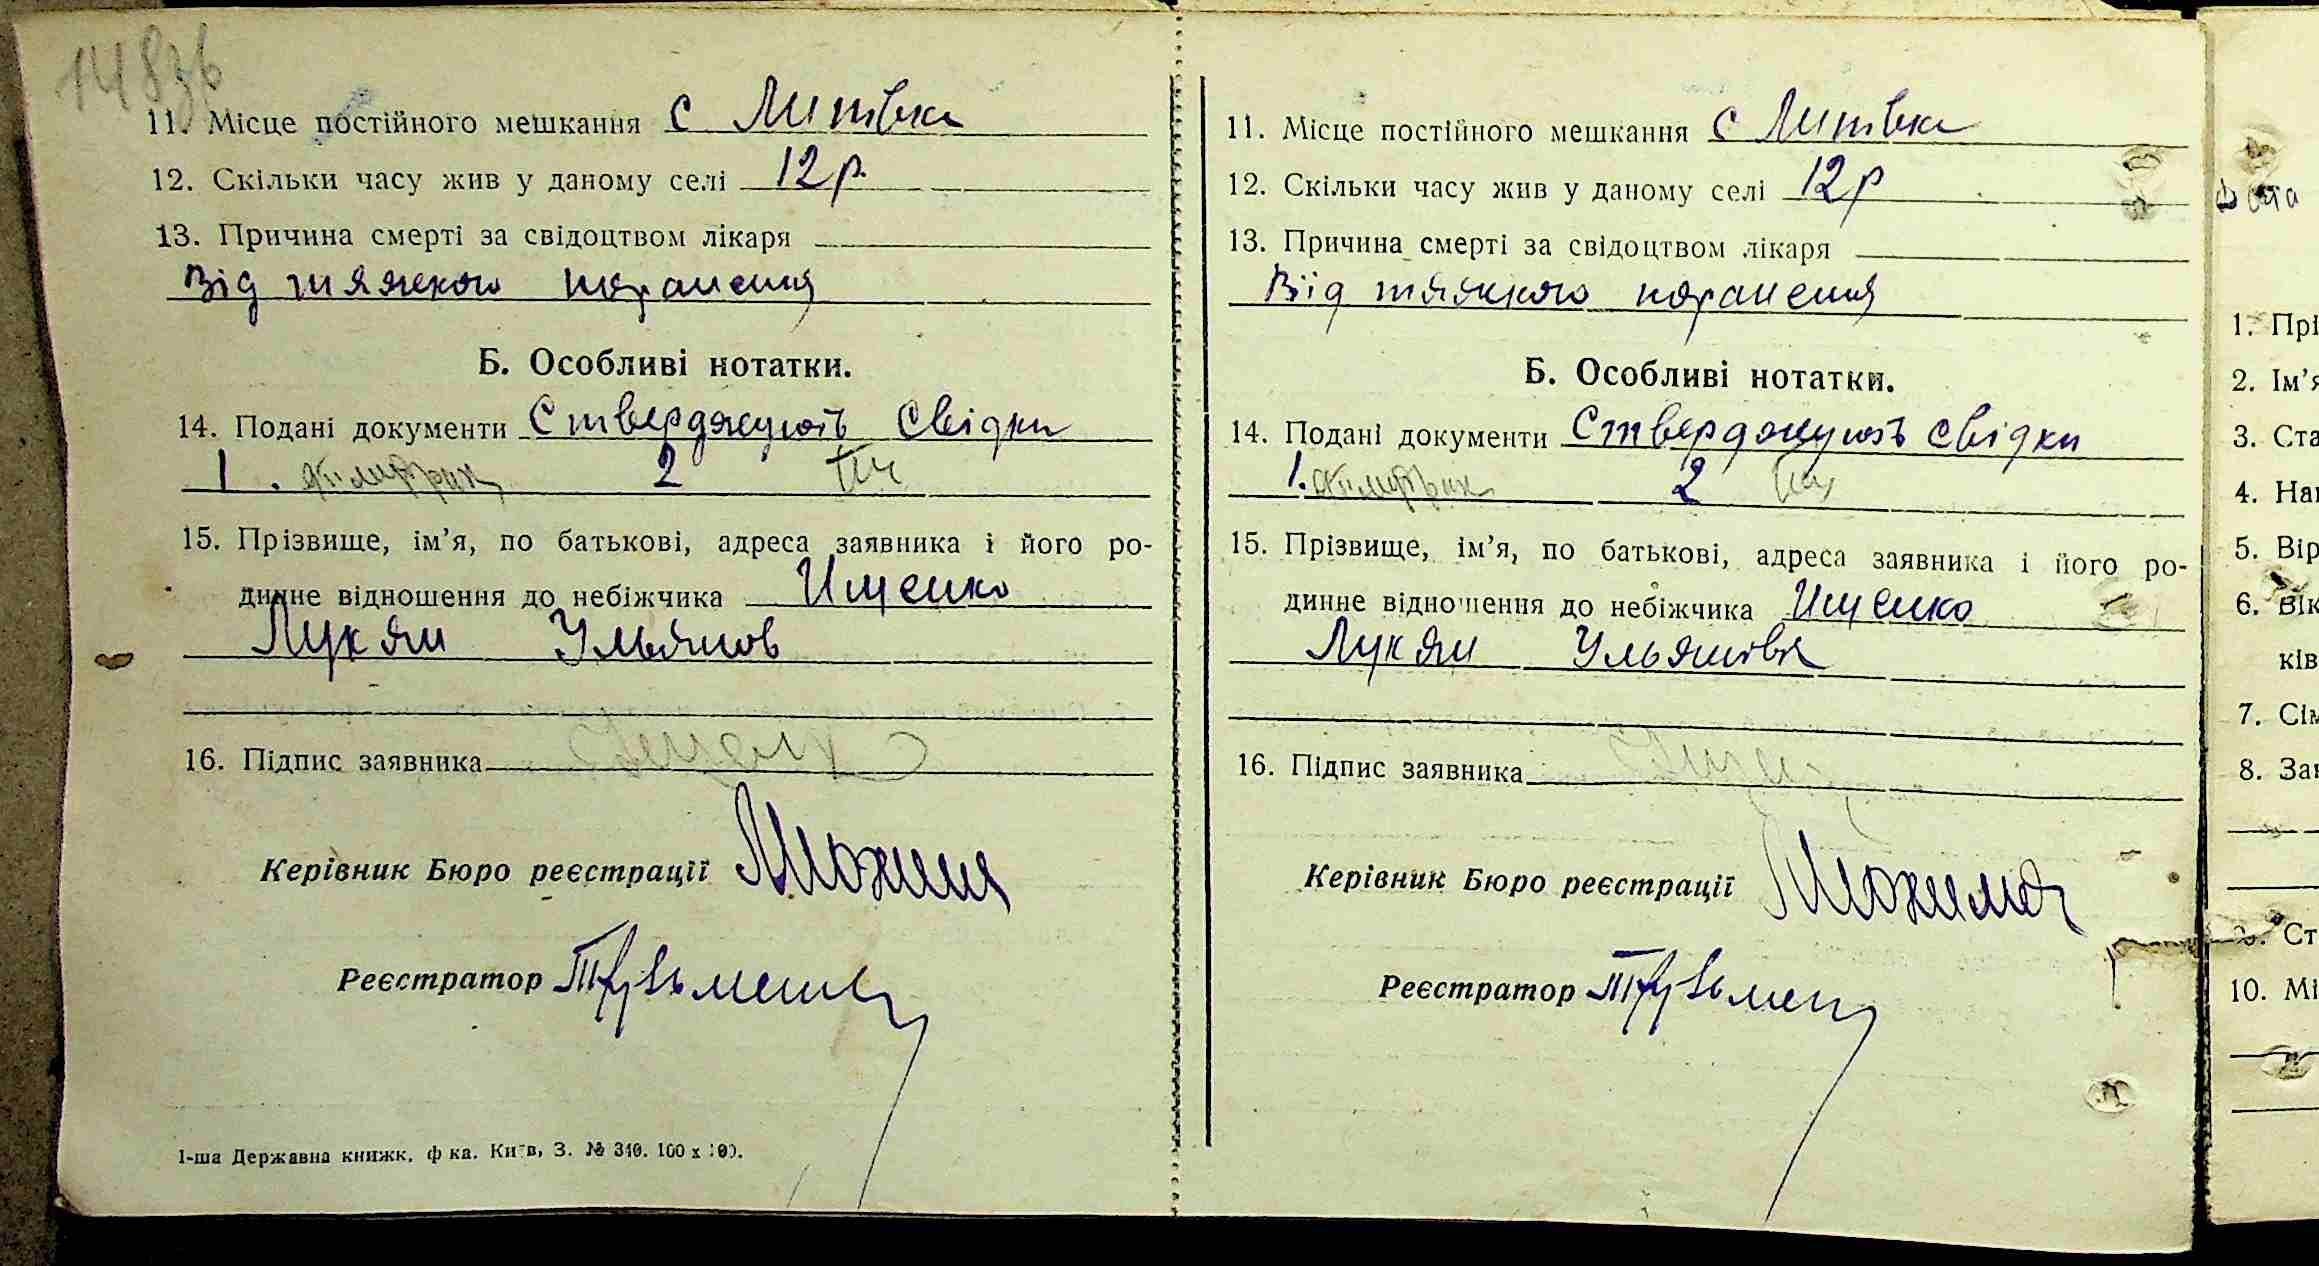 148зв
11. Місце постійного мешкання с Литвки
12. Скільки часу жив у даному селі 12 р.
13. Причина смерті за свідоцтвом лікаря
Від тяжкого поранення
Б. Особливі нотатки.
14. Подані документи Стверджують свідки
1. 2
15. Прізвище, ім'я, по батькові, адреса заявника і його ро-
динне відношення до небіжчика Ищенко
Лукян Ульянов
16. Підпис заявника
Керівник Бюро реєстрації
Реєстратор
1-ша Державна книжк. ф-ка. Київ, З. № 340. 100 х 100.
11. Місце постійного мешкання с Литвки
12. Скільки часу жив у даному селі 12 р
13. Причина смерті за свідоцтвом лікаря
Від тяжкого поранення
Б. Особливі нотатки.
14. Подані документи Стверджують свідки
1. 2
15. Прізвище, ім'я, по батькові, адреса заявника і його ро-
динне відношення до небіжчика Ищенко
Лукян Ульянов
16. Підпис заявника
Керівник Бюро реєстрації
Реєстратор
1. Прі
2. Ім'я
3. Ста
4. На
5. Вір
6. Вік
ків
7. Сім
8. За
9. Ст
10. Мі